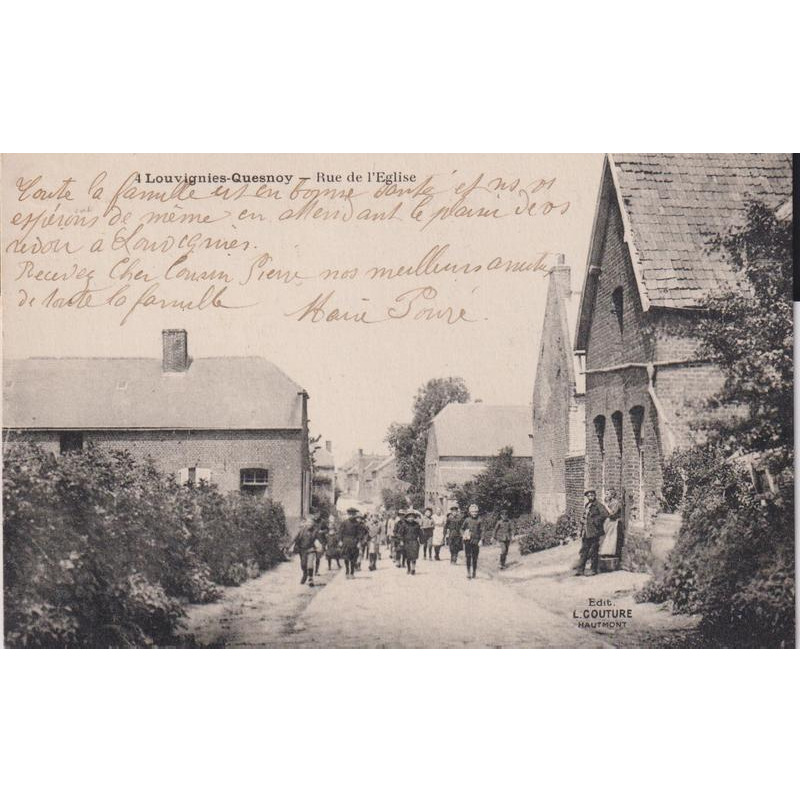 4 Louvignies-Quesnoy – Rue de l'Eglise
Toute la famille est en bonne santé et ns vs
espérons de même en attendant le plaisir de vs
revoir à Louvignies.
Recevez Cher Cousin Pierre nos meilleurs
de toute la famille Marie Pouré.
Edit.
L. COUTURE
HAUTMONT